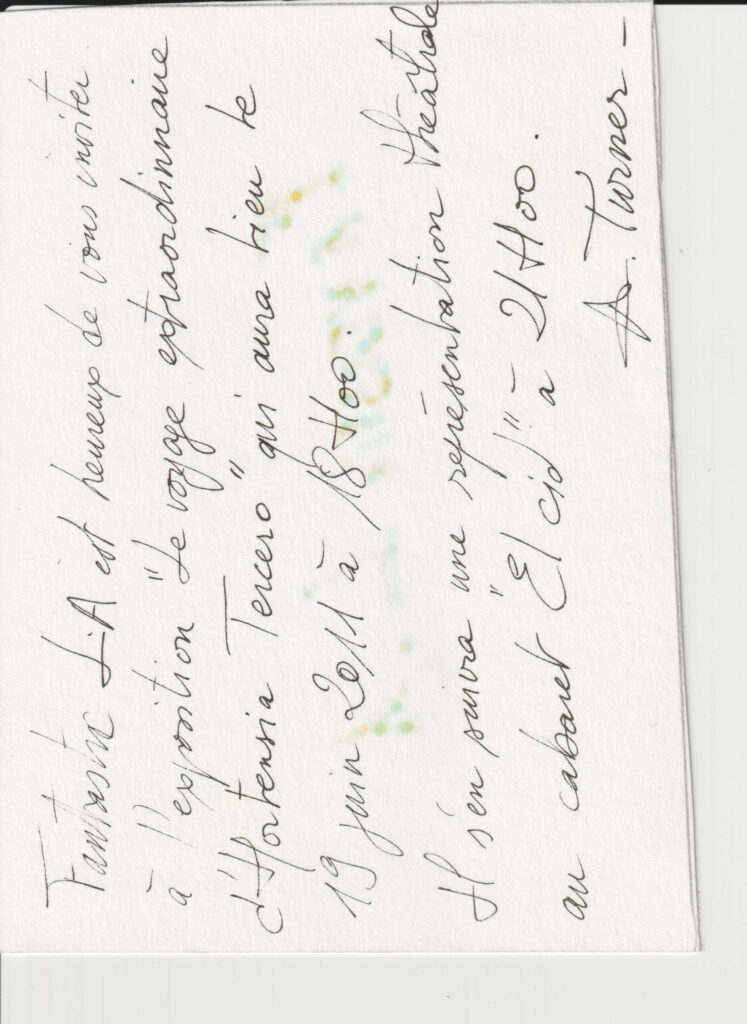 Fantastic L.A est heureux de vous inviter
à l'exposition "Le voyage extraordinnaire
d'Hortensia Tercero" qui aura lieu le
19 juin 2011 à 18H00.
Il s'en suivra une représentation théâtrale
au cabaret "El cid" à 21H00.
A. Turner -